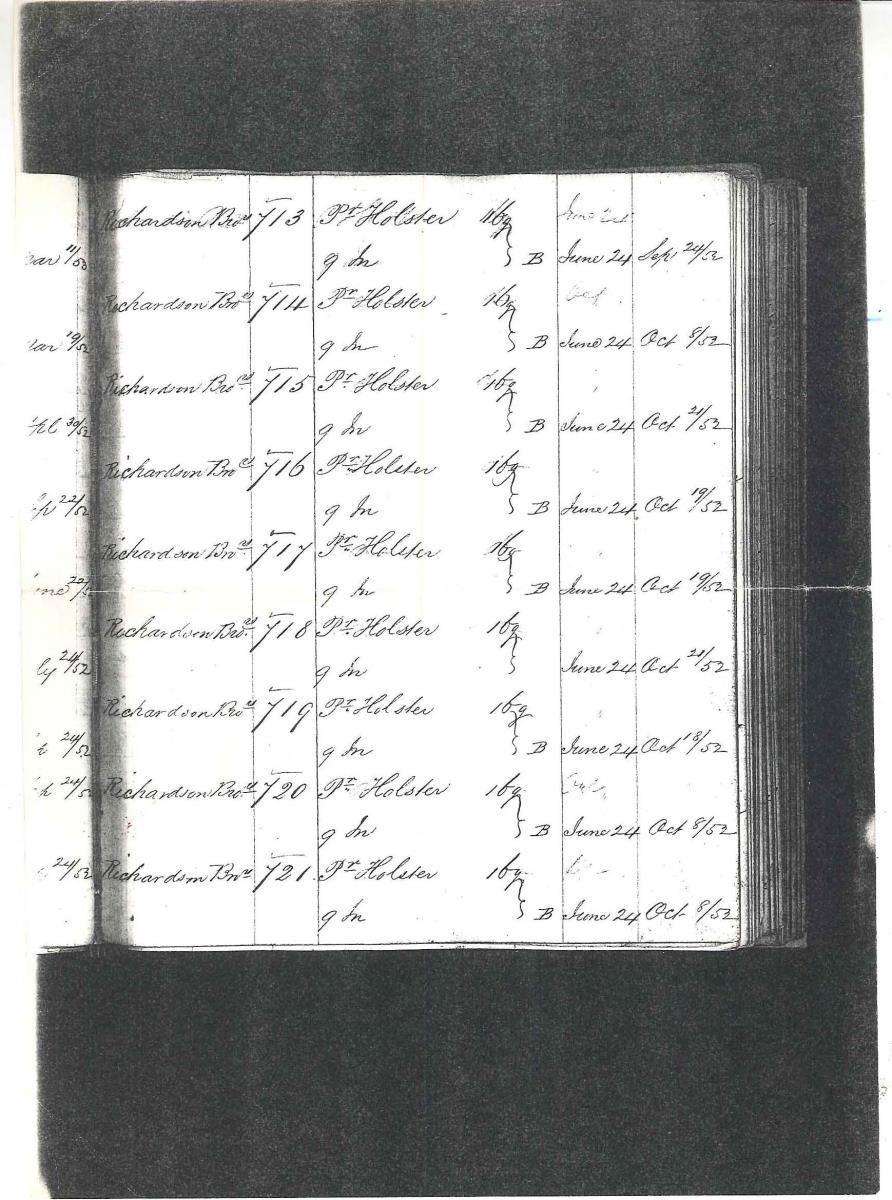 Richardson Bro.rs 713 Pr Holster 16g
9 In B June 24 Sep 24/52
Richardson Bro.rs 714 Pr Holster 16g
9 In B June 24 Oct 8/52
Richardson Bro.rs 715 Pr Holster 16g
9 In B June 24 Oct 21/52
Richardson Bro.rs 716 Pr Holster 16g
9 In B June 24 Oct 19/52
Richardson Bro.rs 717 Pr Holster 16g
9 In B June 24 Oct 19/52
Richardson Bro.rs 718 Pr Holster 16g
9 In June 24 Oct 21/52
Richardson Bro.rs 719 Pr Holster 16g
9 In B June 24 Oct 18/52
Richardson Bro.rs 720 Pr Holster 16g
9 In B June 24 Oct 8/52
24/52 Richardson Bro.rs 721 Pr Holster 16g
9 In B June 24 Oct 8/52